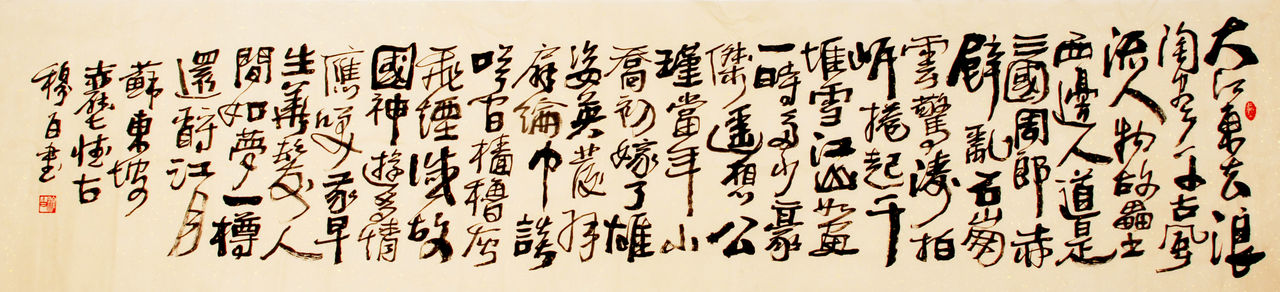 大江東去浪
淘盡千古風
流人物故壘
西邊人道是
三國周郎赤
壁亂石崩
雲驚濤拍
岸捲起千
堆雪江山如畫
一時多少豪
傑遥想公
瑾當年小
喬初嫁了雄
姿英發羽
扇綸巾談
笑間檣櫓灰
飛煙滅故
國神遊多情
應笑我早
生華髮人
間如夢一樽
還酹江月
蘇東坡
赤壁懷古
書